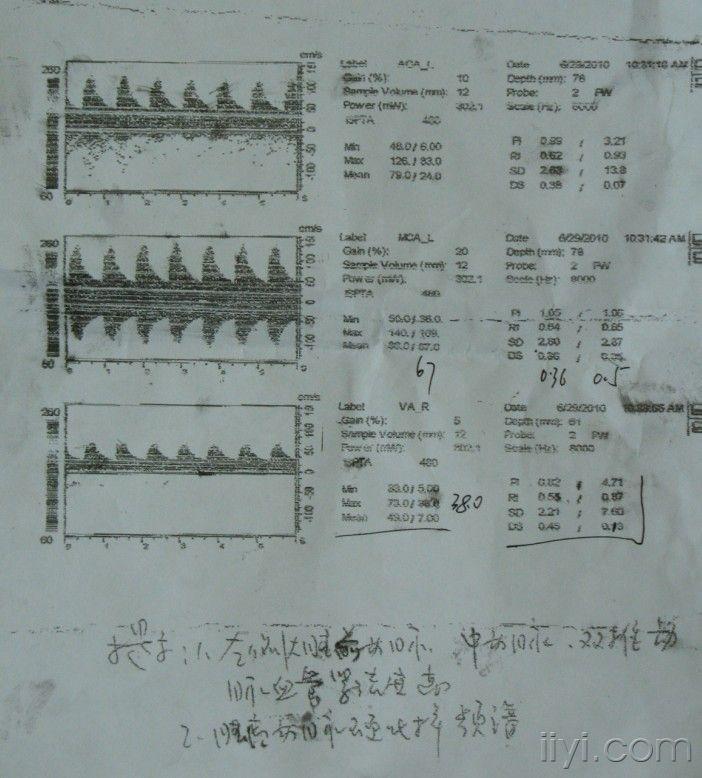 cm/s
260
150
100
50
0
-50
-100
60
0 1 2 3 4 5
Label ACA_L Date 6/29/2010 10:31:16 AM
Gain (%): 10 Depth (mm): 76
Sample Volume (mm): 12 Probe: 2 PW
Power (mW): 302.1 Scale (Hz): 8000
ISPTA 480
PI 0.99 / 3.21
Min 48.0 / 6.00 RI 0.62 / 0.93
Max 126. / 83.0 SD 2.63 13.8
Mean 79.0 / 24.0 DS 0.38 / 0.07
cm/s
260
150
100
50
0
-50
-100
60
0 1 2 3 4 5
Label MCA_L Date 6/29/2010 10:31:42 AM
Gain (%): 20 Depth (mm): 76
Sample Volume (mm): 12 Probe: 2 PW
Power (mW): 302.1 Scale (Hz): 8000
ISPTA 480
PI 1.05 / 1.06
Min 50.0 / 38.0 RI 0.64 / 0.65
Max 140. / 109. SD 2.80 / 2.87
Mean 67.0 DS 0.36
67 0.36 0.5
cm/s
260
150
100
50
0
-50
-100
60
0 1 2 3 4 5
Label VA_R Date 6/29/2010 AM
Gain (%): 5 Depth (mm): 61
Sample Volume (mm): 12 Probe: 2 PW
Power (mW): 302.1 Scale (Hz): 8000
ISPTA 480
PI 0.82 / 4.71
Min 33.0 / 5.00 RI 0.55 / 0.87
Max 73.0 / 38.0 38.0 SD 2.21 / 7.60
Mean 49.0 / 7.00 DS 0.45 / 0.13
提示:1、左侧大脑前动脉、中动脉、双椎动
脉血管 速度
2、脑 动脉 频谱
iiyi.com